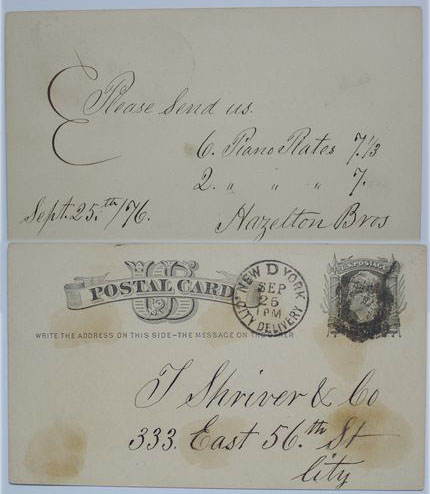 Please Send us.
6. Piano Plates 7.1/3
2. " " " 7.
Sept. 25.th /76.
Hazelton Bros
U S
POSTAL CARD
NEW D YORK
SEP
25
1 PM
CITY DELIVERY
U.S. POSTAGE
WRITE THE ADDRESS ON THIS SIDE-THE MESSAGE ON THE OTHER
T Shriver & Co
333. East 56.th St
City